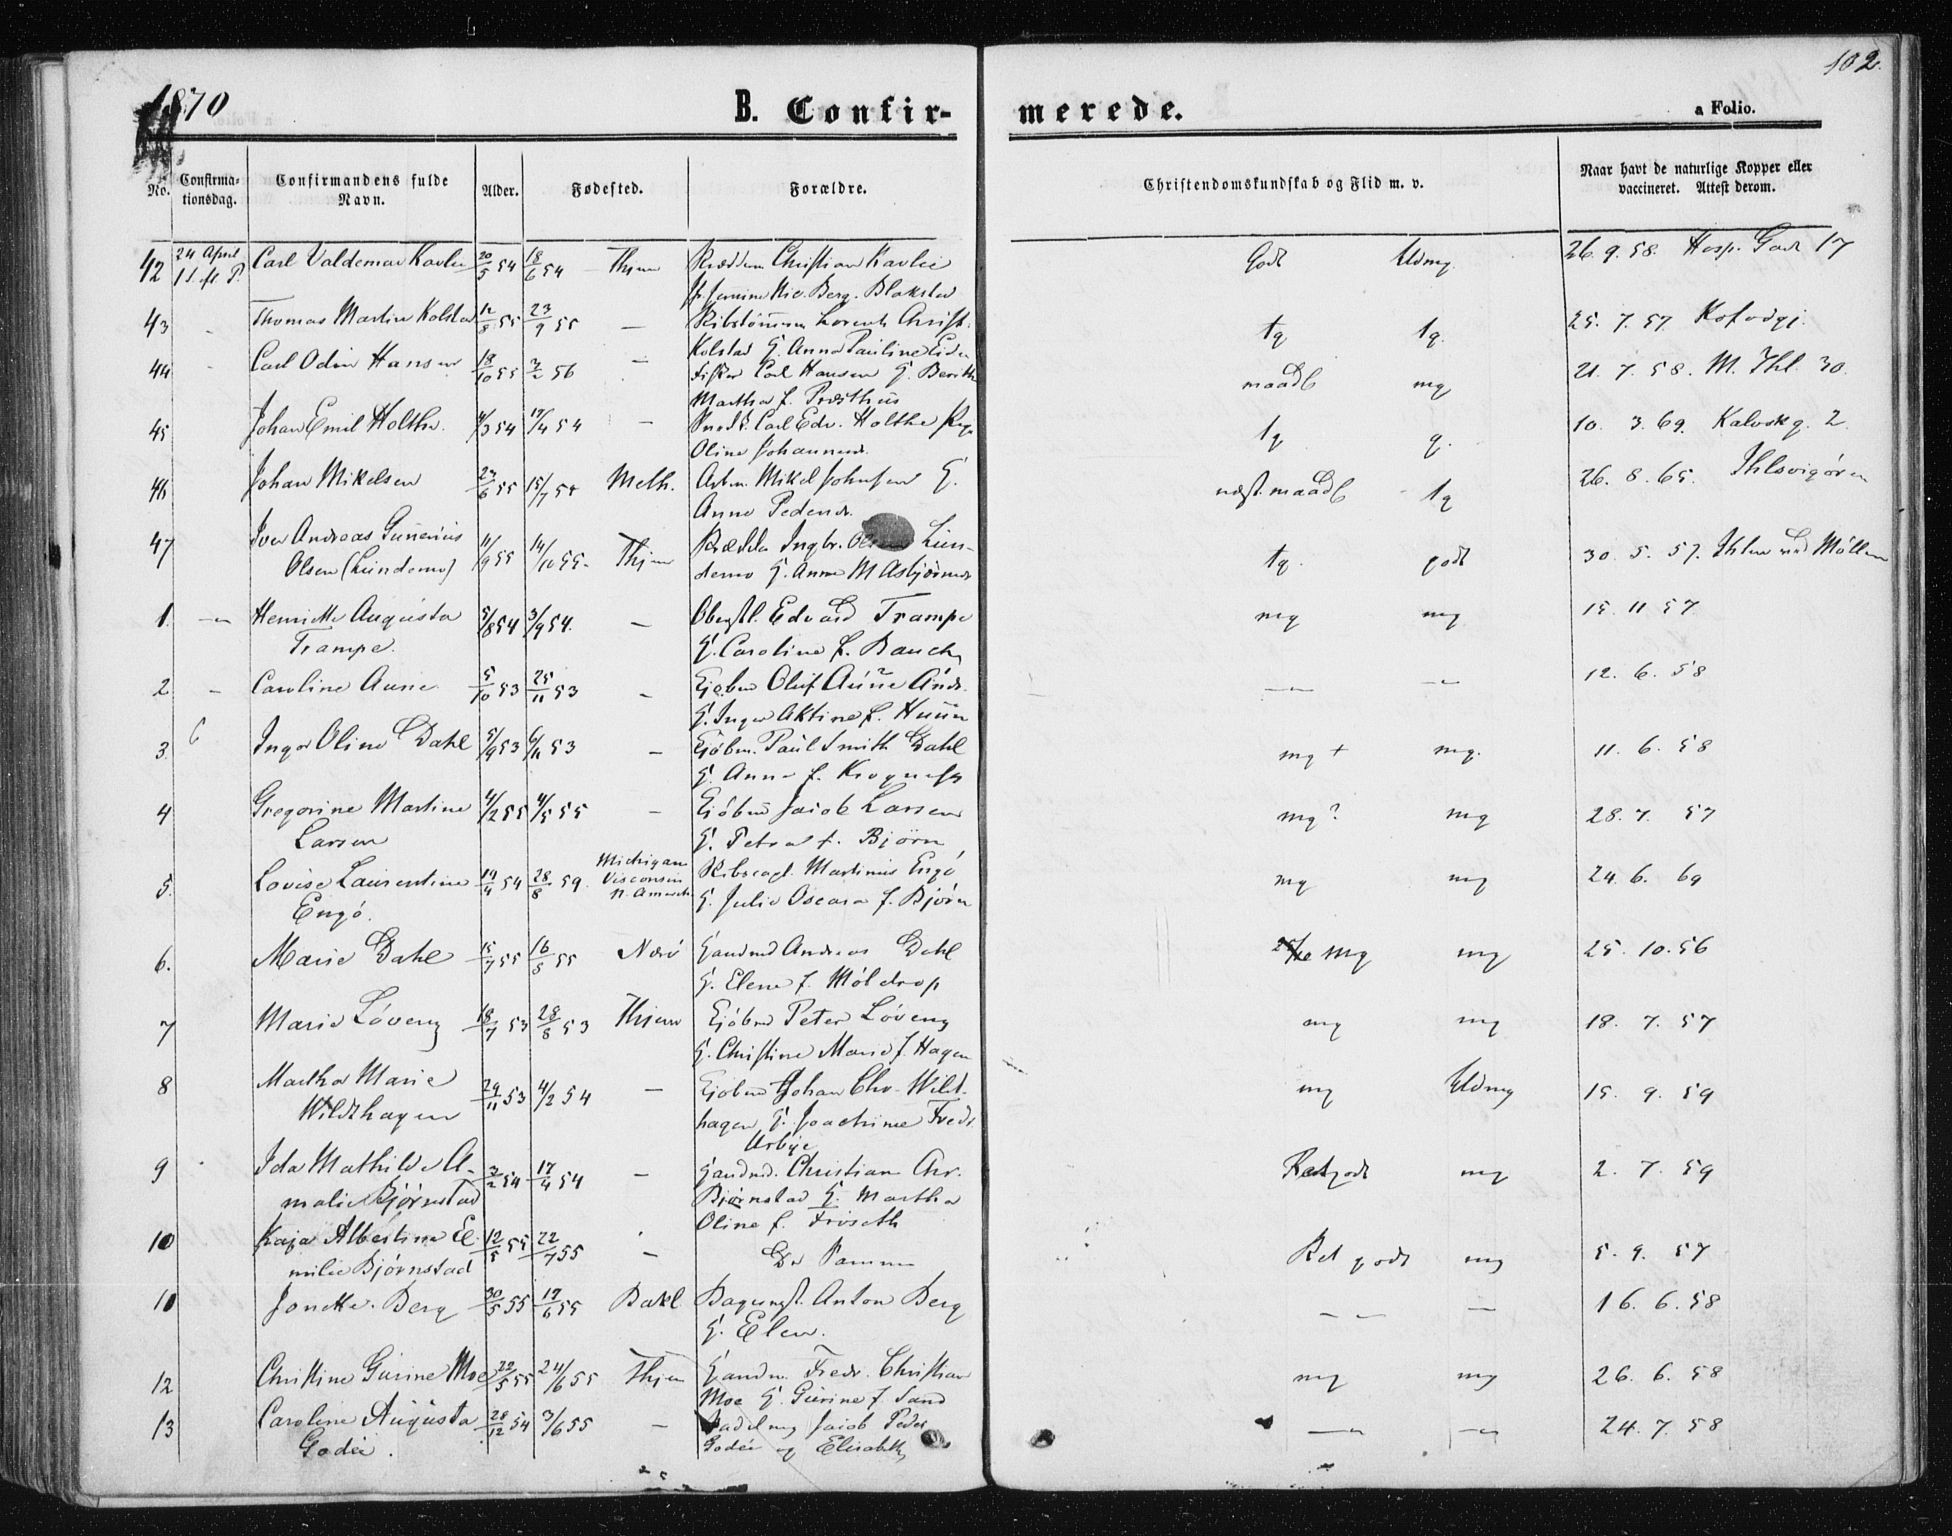 1870
102.
B. Confirmerede.
a Folio.
No.
Confirmationsdag.
Confirmandens fulde Navn.
Alder.
Fødested.
Forældre.
Christendomskundskab og Flid m. v.
Naar havt de naturlige Kopper eller vaccineret. Attest derom.
42 24 April Carl Valdemar Kavlie 20/5 54 18/6 54 Thjem Christian Kavlie Godt Udmg 26. 9. 58. Hosp. 17
1 S. ft. P. Berg. Blakstad
43 - Thomas Martin Kolstad 55 23/9 55 — 25. 7. 57
Kolstad G. Anna Pauline tg tg.
44 - Carl Odin Hansen 18/10 55 3/2 56 - Fisker Carl Hansen G. Berith maadl mg 21. 7. 58. M. Ihl. 30.
Martha f. Præsthus
45 Johan Emil Holthe. 4/3 54 17/4 54 — Carl Edv. Holthe tg g. 10. 3. 69. Kalvskg. 2
Oline Johannesd.
46 Johan Mikelsen 23/6 55 15/7 55 Melh. Arbm. Mikel Johnsen G. næst. maadl tg 26. 8. 65. Ihlsvigøren
Anne Pedersd.
47 Iver Andreas Gunerius 11/9 55 14/10 55- Thjem Ingbr. Lun-
Olsen (Lundemo) demo G. Anne M Asbjørnsd tg. godt 30. 5. 57. Ihlen ved Møllen
1. -"- Henriette Augusta 5/8 54 3/9 54. — Oberstl. Edvard Trampe mg mg 15. 11. 57
Trampe. G. Caroline f. Bauck
2 - Caroline Aune 5/10 53 25/11 53 - Gjøbmd Oluf Aune Andr. -"- -"- 12. 6. 58
G. Inger Aktine f. Huun
3. Inger Oline Dahl 5/9 53 6/11 53 - Gjøbm. Paul Smith Dahl mg + mg. 11. 6. 58
G. Anna f. Krogness
4 Gregorine Martine 4/2 55 4/5 55 - Gjøbmd Jacob Larsen mg? mg 28. 7. 57
Larsen G. Petra f. Bjørn
5. Lovise Laurentine 19/4 54 28/8 59. Michigan Visconsin N. Amerik. Martinus Engø mg mg 24. 6. 69
Engø. G. Julie Oscara f. Bjørn
6. Marie Dahl 15/7 55 16/5 55 Nærø Gaardmd Andreas Dahl mg mg 25. 10. 56
G. Elene f. Moldrop
7 Marie Løveng 18/7 53 28/8 53 Thjem Gjøbmd Peter Løveng mg mg 18. 7. 57
G. Christine Marie f. Hagen
8 Martha Marie 29/11 53 4/2 54 — Gjøbmd Johan Chr. Wild- mg Udmg 15. 9. 59
Wildthagen hagen G. Joachime Fredr
Urbye
9 Ida Mathilde A- 3/2 54 17/4 54 — Gaardmd. Christian Chr. Retgodt mg 2. 7. 59
malie Bjørnstad Bjørnstad G. Martha
Oline f. Frøseth
10 Kaja Albertine E- 12/5 55 22/7 55 — De Samme Ret godt mg 5. 9. 57
milie Bjørnstad
11 Jonette Berg 30/5 55 17/6 55 Bakl Anton Berg -"- — 16. 6. 58
G. Elen.
12 Christine Gurine Moe 22/5 55 24/6 55 Thjem Gaardm. Fredr. Christian mg mg 26. 6. 58
Moe G. Gurine f. Sand
13 Caroline Augusta 28/12 54 3/6 55 — Jacob Peder -"- -"- 24. 7. 58
Godøi. Godøi og Elisabeth